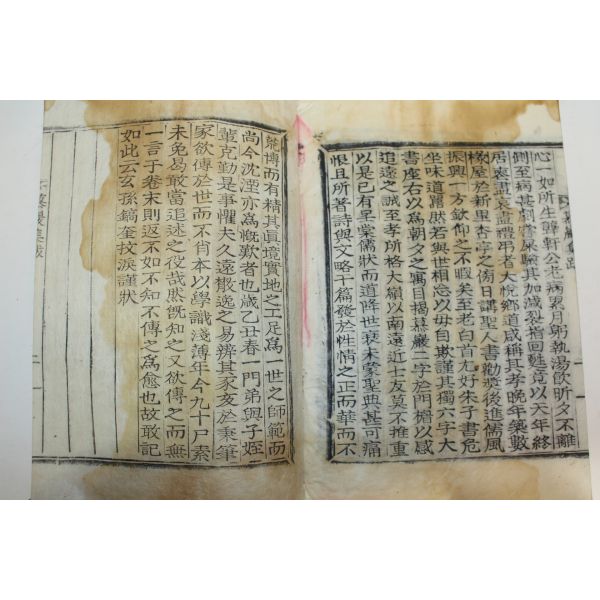 心一如所生聾軒公老病累月躬執湯飮昕夕不離
側至病甚割嘗屎驗其加減裂指回甦竟以天年終
居哀盡哀盡禮弔者大悅鄕道咸稱其孝晩年築數
椽屋於新里杏亭之傍日講聖人書勸奬後進儒風
振興一方欽仰之不暇矣至老白首尤好朱子書危
坐味道囂然若與世相忘以毋自欺謹其獨六字大
書座右以爲朝夕之囑目揭慕巖二字於門楣以感
追遠之誠至孝所格大嶺以南遠近士友莫不推重
以是已有早棠儒狀而道降世衰未蒙聖典甚可痛
恨且所著詩與文略十篇發於性情之正而華而不
荒博而有精其眞境實地之工足爲一世之師範而
尙今沈湮亦爲慨歎者也歲乙丑春一門弟與子姪
輩克勤是事懼夫久遠散逸之易辨其家亥於秉筆
家欲傳於世而不肖本以學識淺薄年今九十尸素
未免易敢當追述之役哉然旣知之又欲傳之而無
一言于卷末則返不如不知不傳之爲愈也故敢記
如此云玄孫鎬奎抆淚謹狀